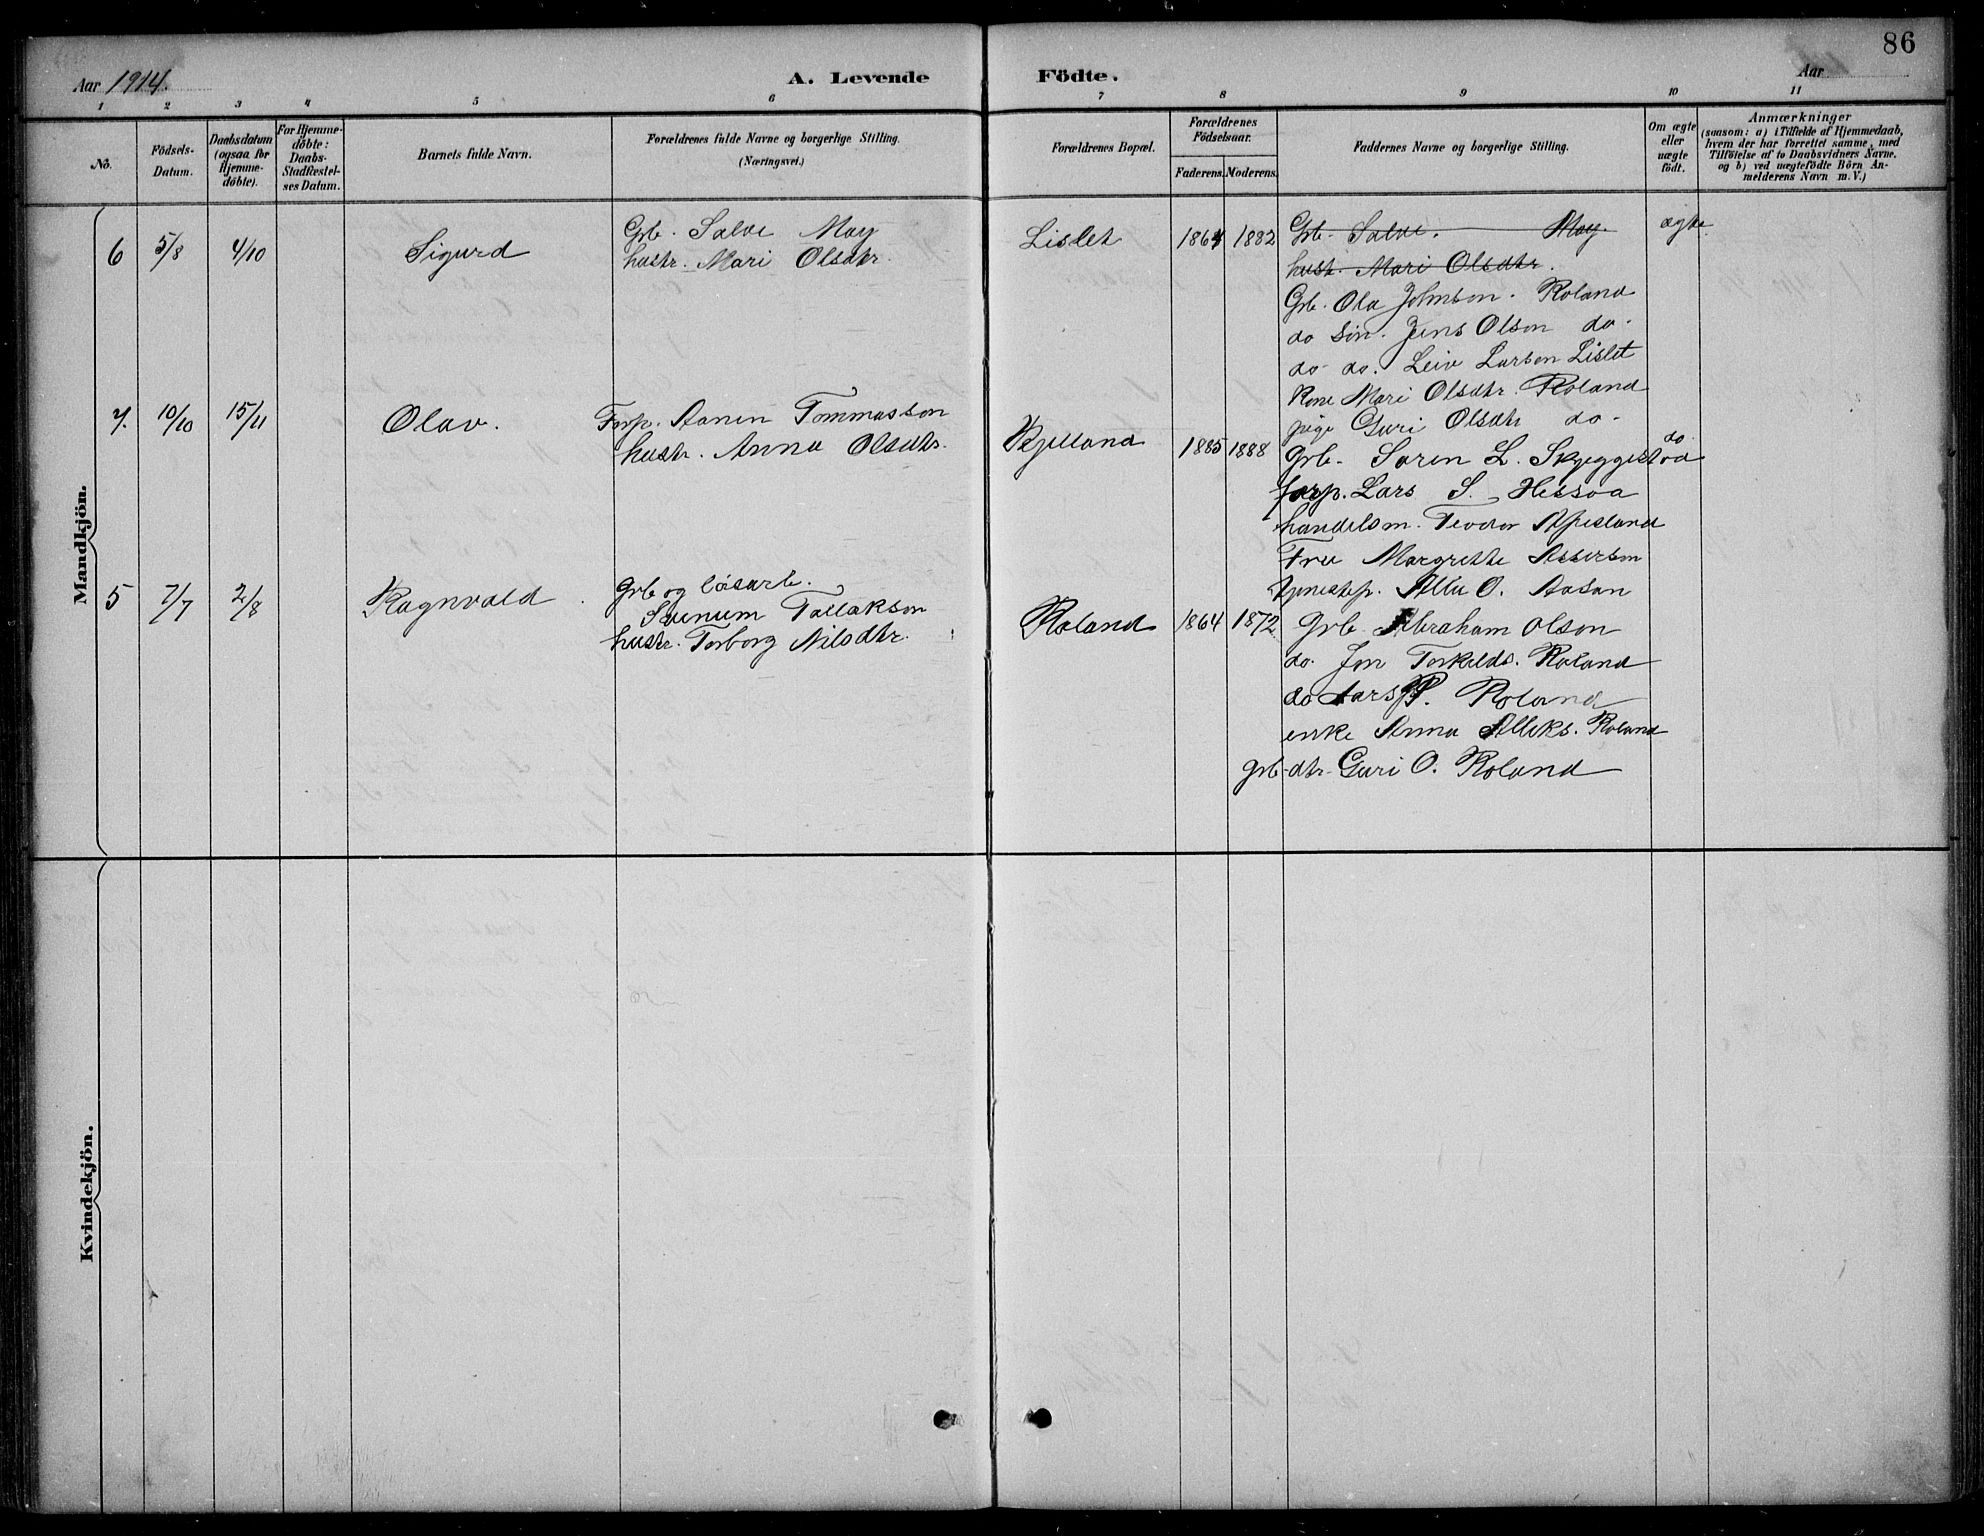 86
Aar 1914.
A. Levende Födte.
Aar
1 2 3 4 5 6 7 8 9 10 11
No.
Födsels-Datum.
Daabsdatum (ogsaa for Hjemmedöbte).
For Hjemmedöbte: Daabs-Stadfæstelses Datum.
Barnets fulde Navn.
Forældrenes fulde Navne og borgerlige Stilling.
(Næringsvei.)
Forældrenes Bopæl.
Forældrenes Födselsaar.
Faderens. Moderens.
Faddernes Navne og borgerlige Stilling.
Om ægte eller uægte födt.
Anmærkninger
(saasom: a) i Tilfælde af Hjemmedaab, hvem der har forrettet samme, med Tilföielse af to Daabsvidners Navne, og b) ved uægtefödte Börn Anmelderens Navn m. V.)
Mandkjön.
6 5/8 4/10 Sigurd
Grb. Salve Moy
hustr. Mari Olsdtr.
Lislet 1864 1882
Grb. Salve. Moy.
hust. Mari Olsdtr.
Grb. Ola Johnson. Roland
do søn. Jens Olson do.
do do. Leiv Larsen Lislet
Kone Mari Olsdtr. Roland
pige Guri Olsdtr do.
ægte
7. 10/10 15/11 Olav.
Forp. Aanen Tommasson
hustr. Anna Olsdtr.
Kjelland 1885 1888
Grb. Soren L. Skjeggestad
forp. Lars S. Hessaa
handelsm. Teodor Apesland
Frue Margrethe Asserson
tjenestep. Allu O. Aasan
do
5 7/7 2/8 Ragnvald
Grb og løsarb.
Svenum Tallakson
hustr. Torborg Nilsdtr.
Roland 1864 1872
Grb. Abraham Olson
do. Jon Torkelds. Roland
do Lars P. Roland
enke Anna Alleks. Roland
grb-dtr. Guri O. Roland
Kvindekjön.